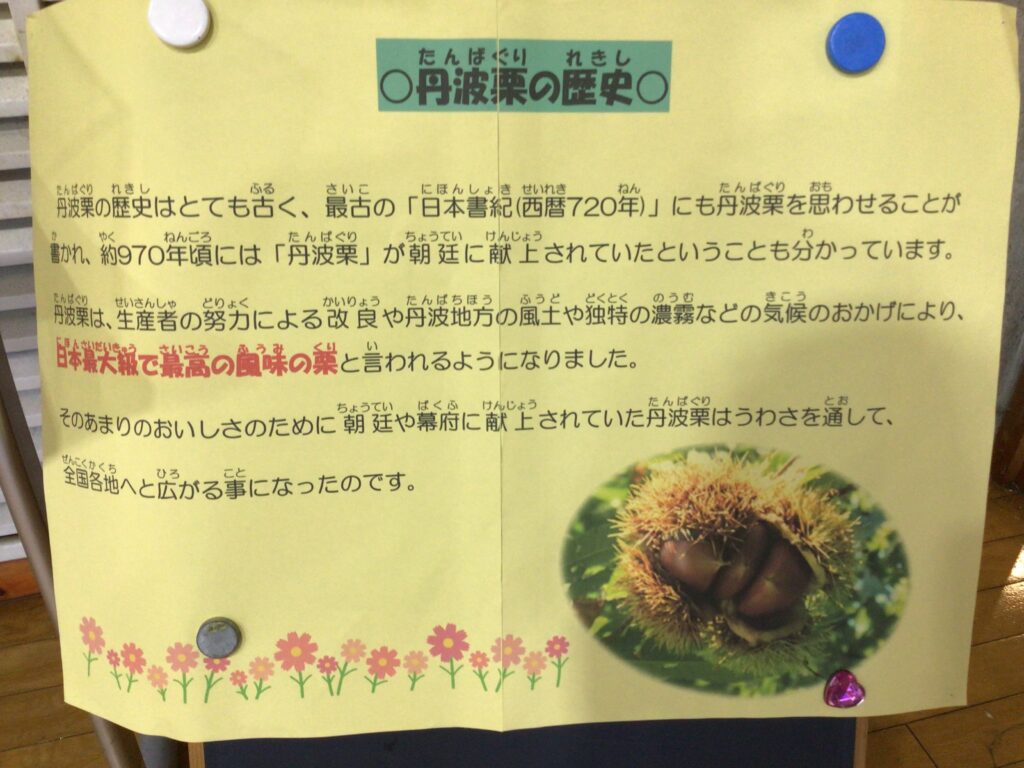 ○丹波栗の歴史○
丹波栗の歴史はとても古く、最古の「日本書紀(西暦720年)」にも丹波栗を思わせることが
書かれ、約970年頃には「丹波栗」が朝廷に献上されていたということも分かっています。
丹波栗は、生産者の努力による改良や丹波地方の風土や独特の濃霧などの気候のおかげにより、
日本最大級で最高の風味の栗と言われるようになりました。
そのあまりのおいしさのために朝廷や幕府に献上されていた丹波栗はうわさを通して、
全国各地へと広がる事になったのです。